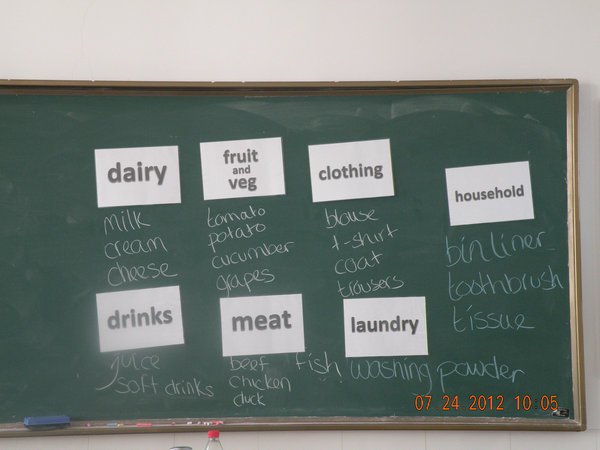 dairy
milk
cream
cheese
fruit
and
veg
tomato
potato
cucumber
grapes
clothing
blouse
t-shirt
coat
trousers
household
bin liner
toothbrush
tissue
drinks
juice
soft drinks
meat
beef fish
chicken
duck
laundry
washing powder
07 24 2012 10:05